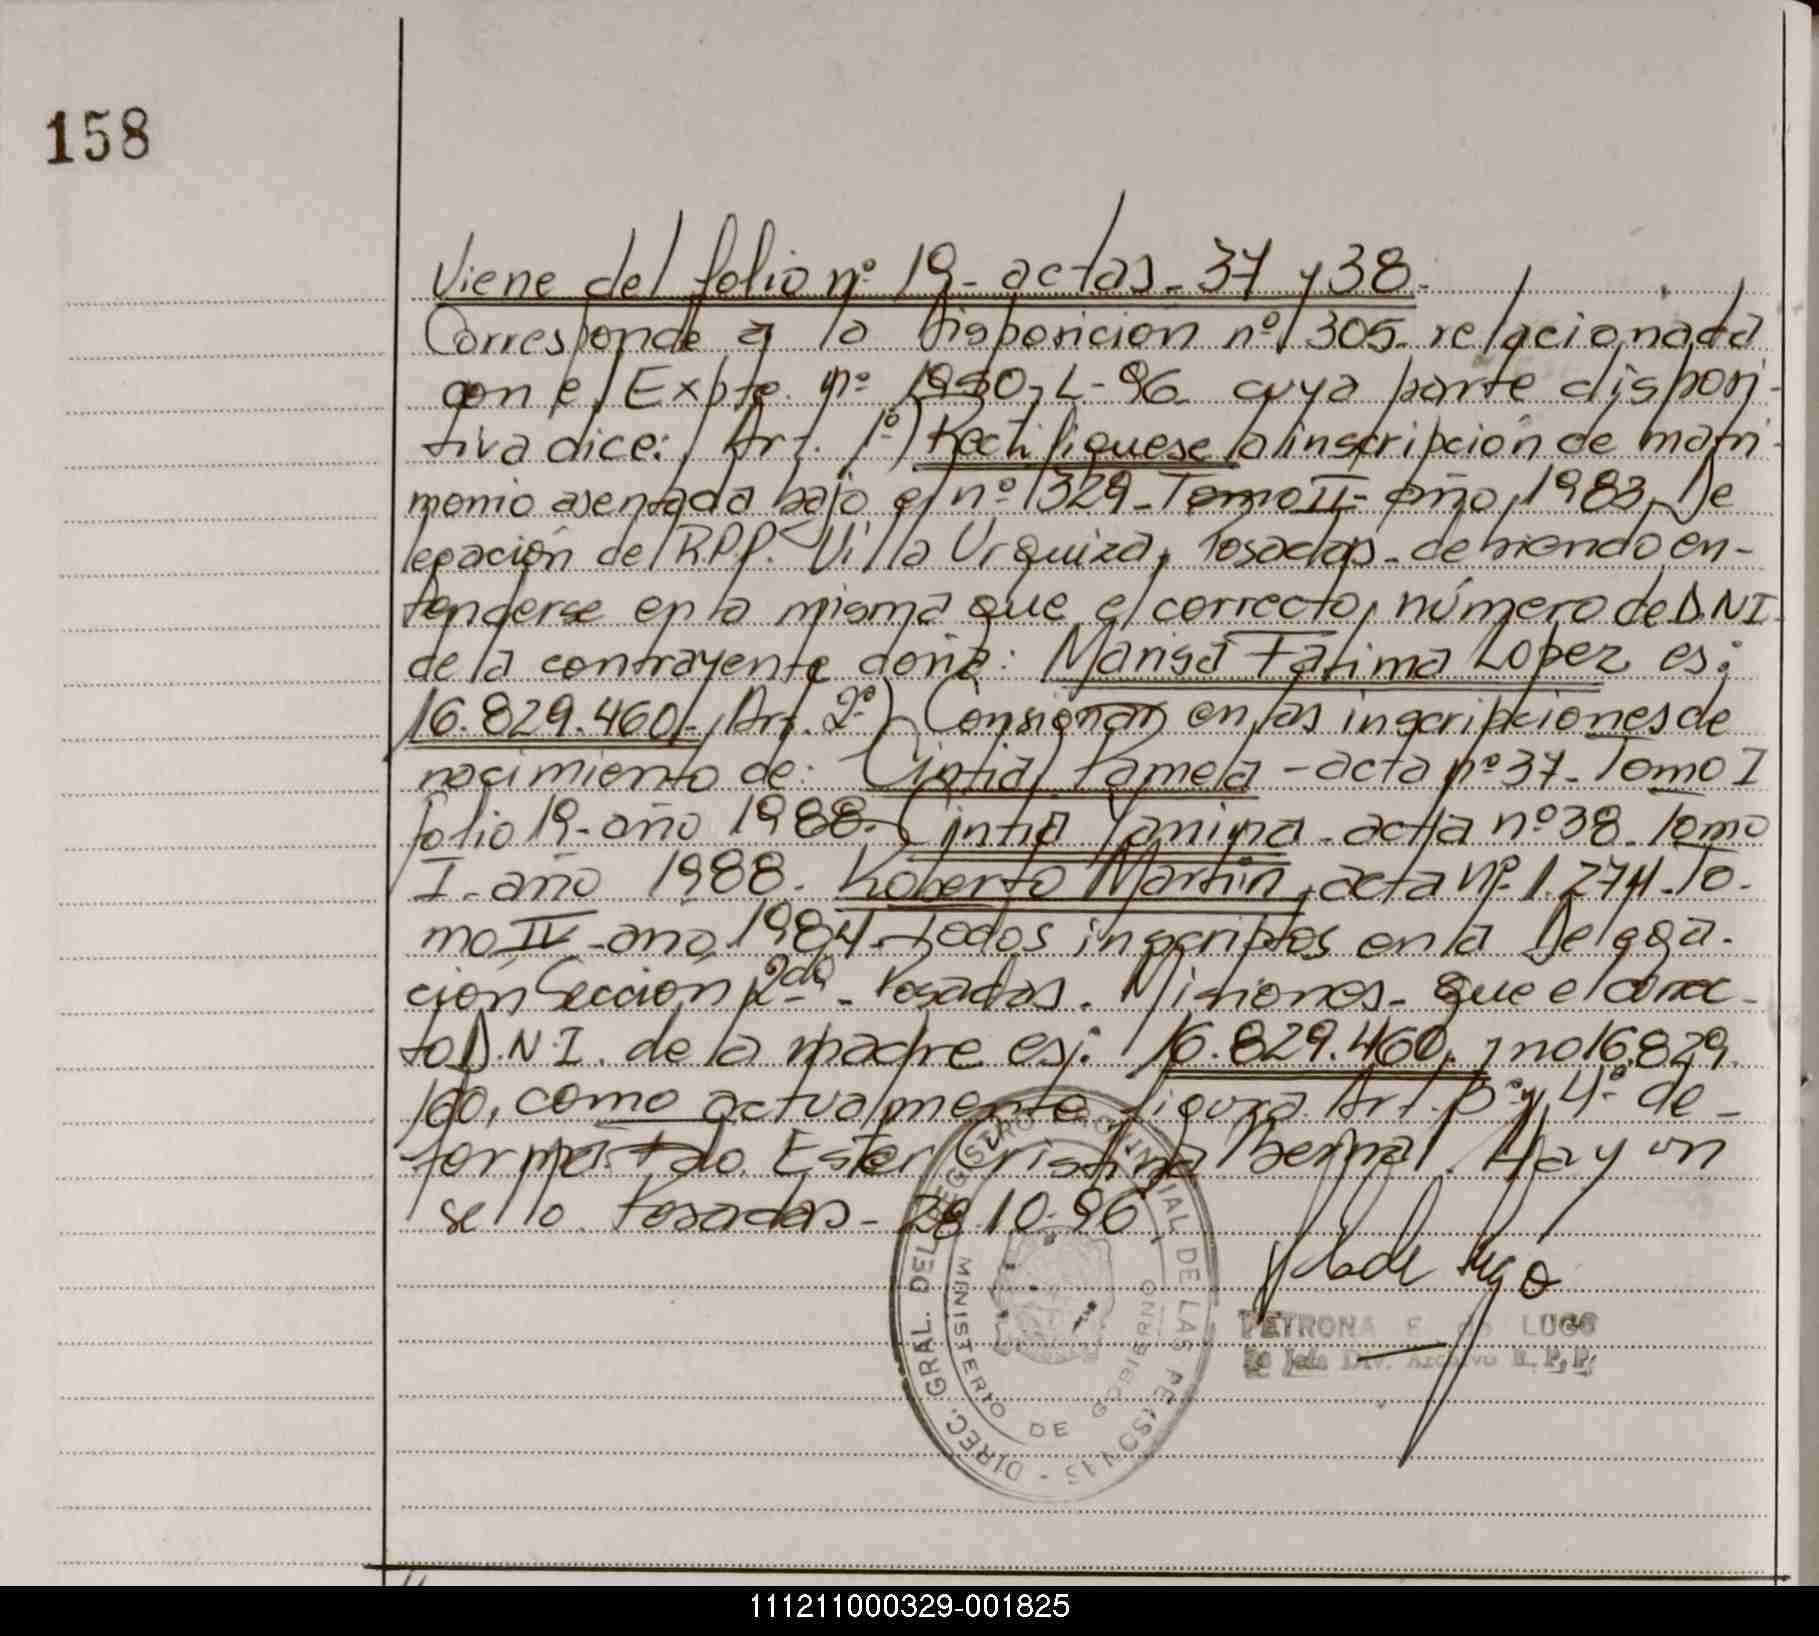 158
Viene del folio nº 19- actas- 37 y 38.
Corresponde a la Disposicion nº 305- relacionada
con el Expte. nº 1990-L-96 cuya parte disposi-
tiva dice: Art. 1º) Rectifiquese la inscripción de matri-
monio asentada bajo el nº 329-Tomo II- año 1983-De
legación de RPP. Villa Urquiza, Posadas- debiendo en-
tenderse en la misma que el correcto número de D.NI.
de la contrayente doña: Marisa Fatima Lopez es:
16.829.460- Art. 2º) Consignar en las inscripciones de
nacimiento de: Cintia Pamela - acta nº 37- Tomo I
folio 19- año 1988- Cintia Yanina- acta nº 38- Tomo
I- año 1988- Roberto Martin, acta Nº 1.274-To-
mo IV- año 1984- todos inscriptos en la Delega-
ción Sección 2da- Posadas- Misiones- que el correc-
to D.N.I. de la madre es: 16.829.460, y no 16.829.
160, como actualmente figura. Art. 3º y 4º de-
forma. Fdo. Ester Cristina Bernal. Hay un
sello. Posadas- 28.10.96
DIREC. GRAL. DEL REGISTRO PROVINCIAL DE LAS PERSONAS
MINISTERIO DE GOBIERNO
PETRONA E de LUGO
Jefe Div. Archivo R.P.P.
111211000329-001825